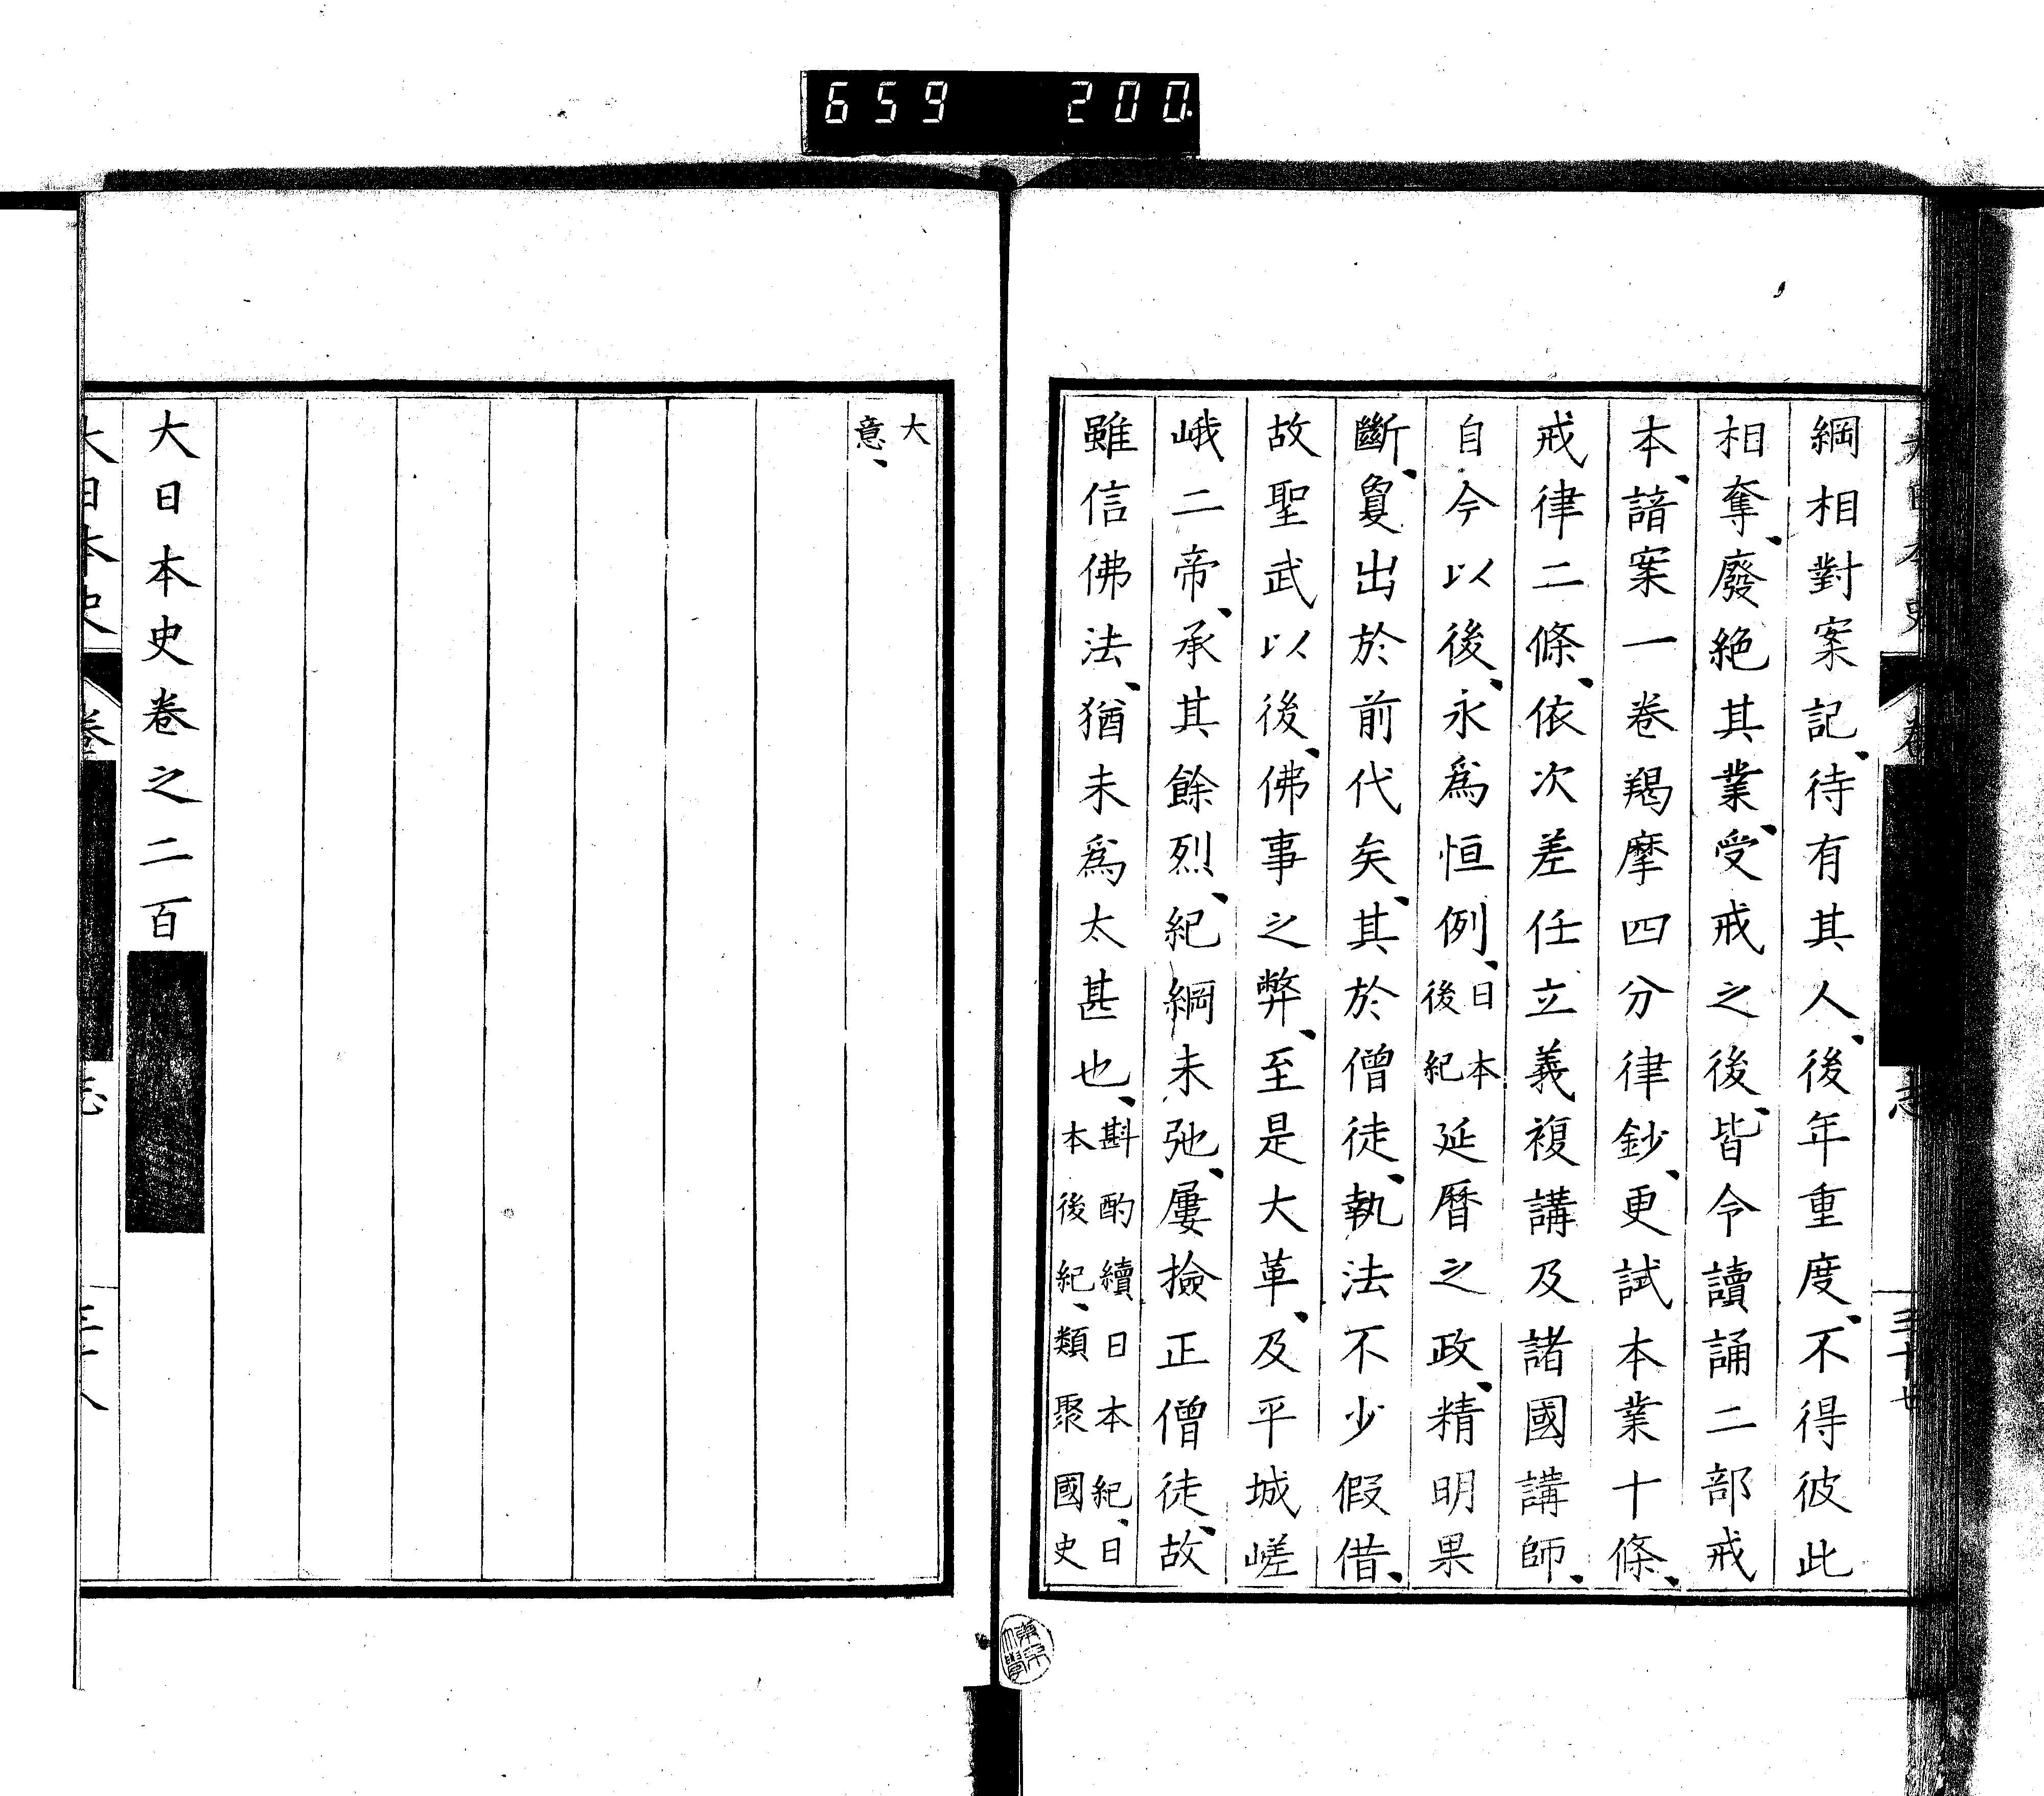 659 200
綱相對案記、待有其人、後年重度、不得彼此
相奪、廢絶其業、受戒之後、皆令讀誦二部戒
本、諳案一卷羯摩四分律鈔、更試本業十條、
戒律二條、依次差任立義複講及諸國講師、
自今以後、永爲恒例、日本後紀延曆之政、精明果
斷、敻出於前代矣、其於僧徒、執法不少假借、
故聖武以後、佛事之弊、至是大革、及平城嵯
峨二帝、承其餘烈、紀綱未弛、屢撿正僧徒、故
雖信佛法、猶未爲太甚也、斟酌續日本紀、日
本後紀、類聚國史
大
意、
大日本史卷之二百
大日本史 卷 志 三十八